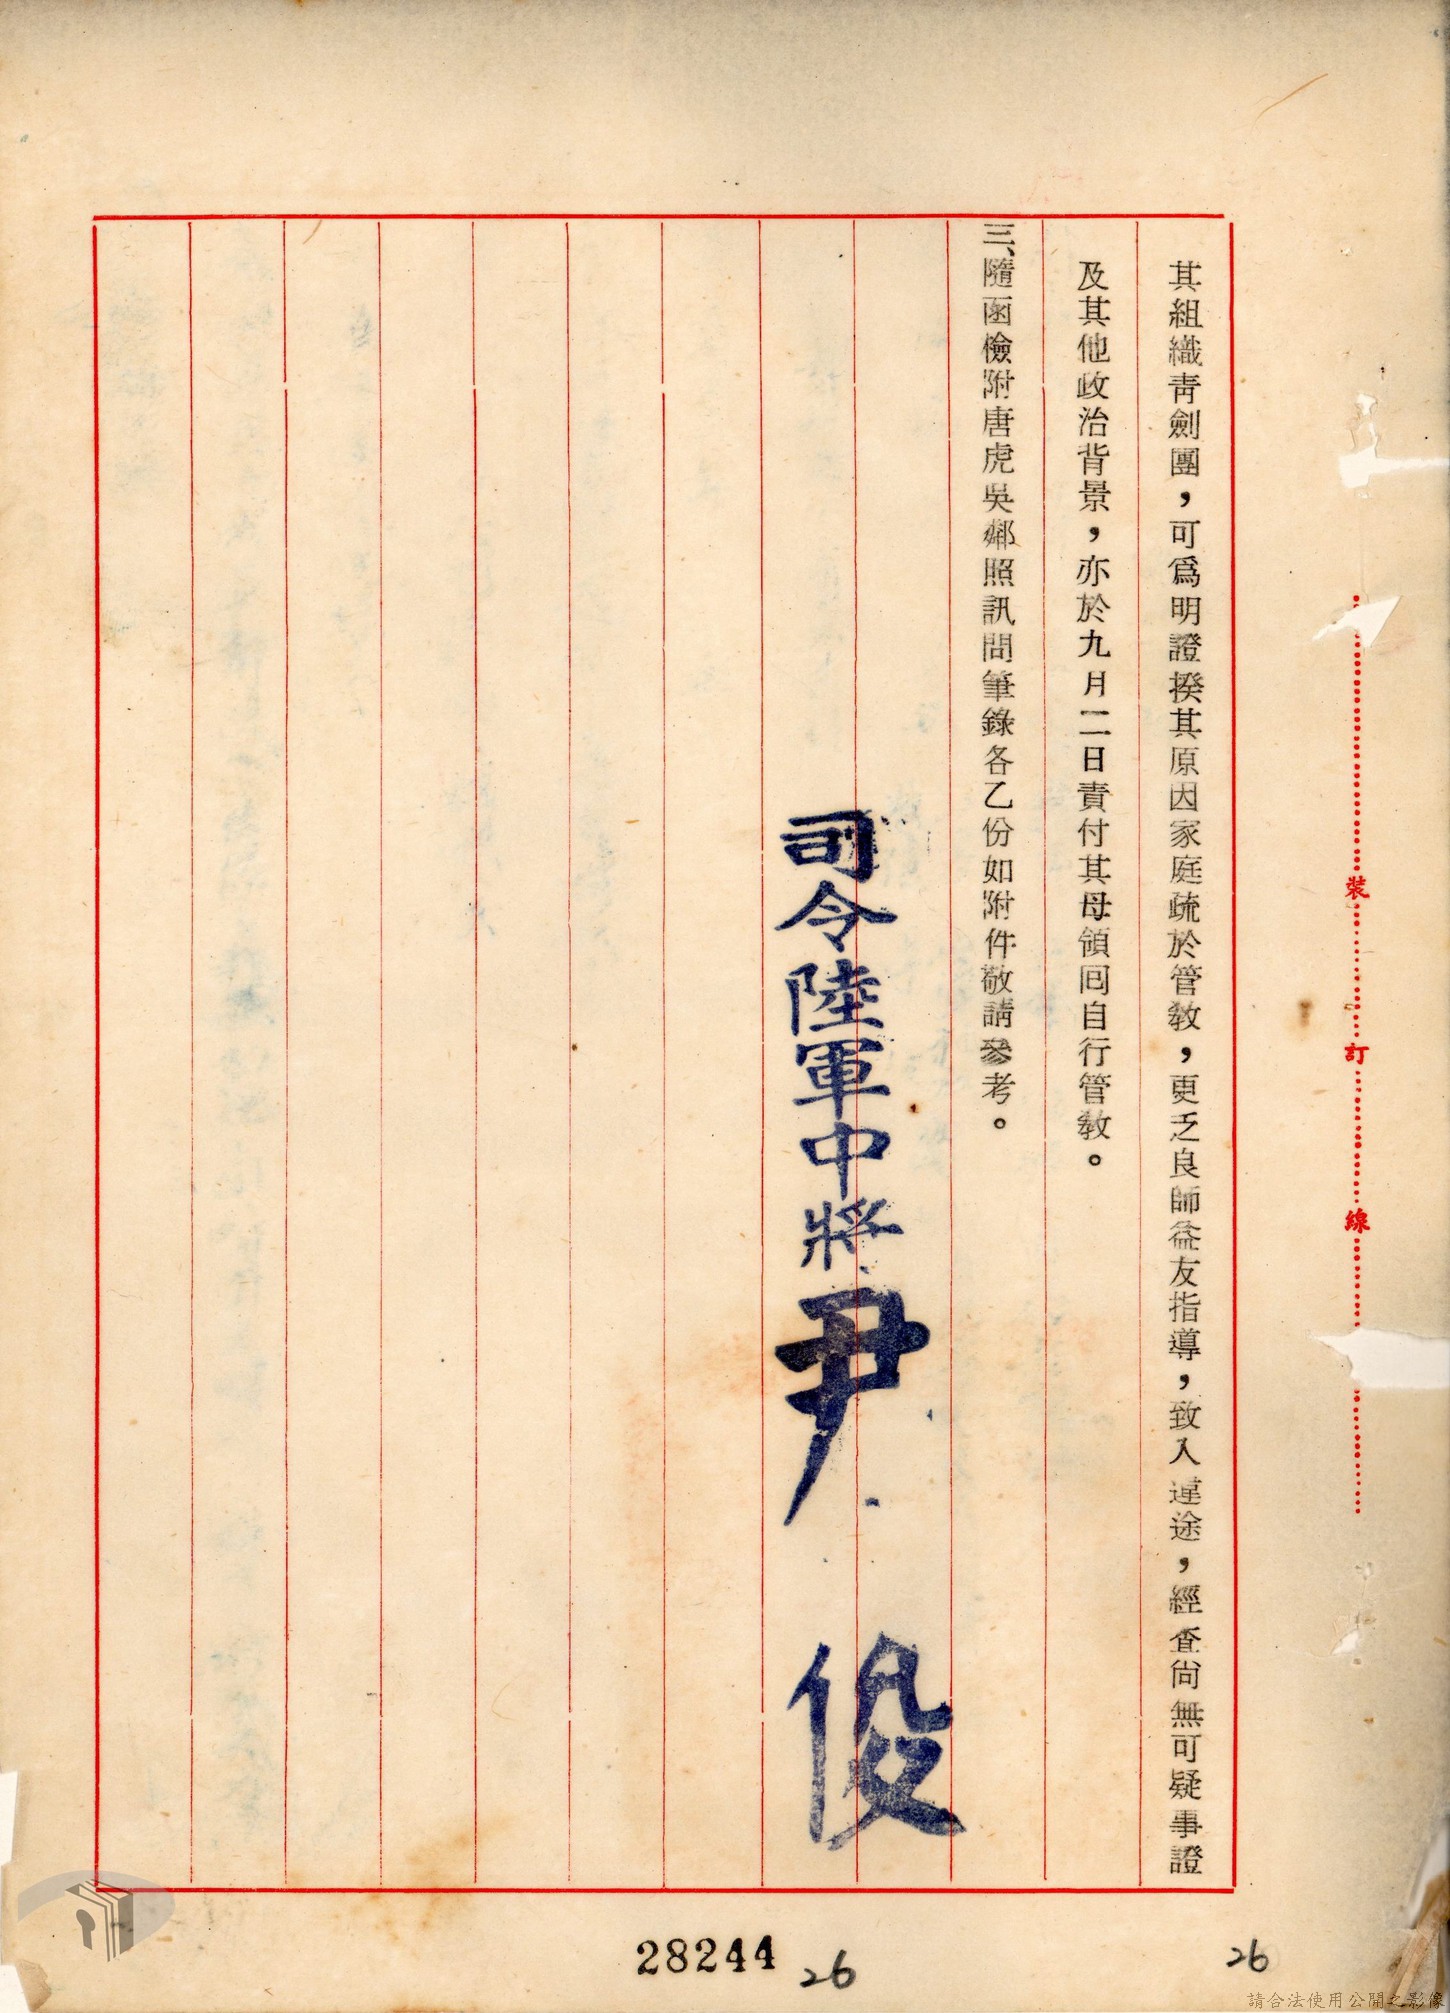 其組織青劍團，可爲明證揆其原因家庭疏於管教，更乏良師益友指導，致入違途，經查尙無可疑事證
及其他政治背景，亦於九月二日責付其母領囘自行管教。
三、隨函檢附唐虎吳鄰照訊問筆錄各乙份如附件敬請參考。
司令陸軍中將尹 俊
裝訂線
28244
26
26
請合法使用公開之影像